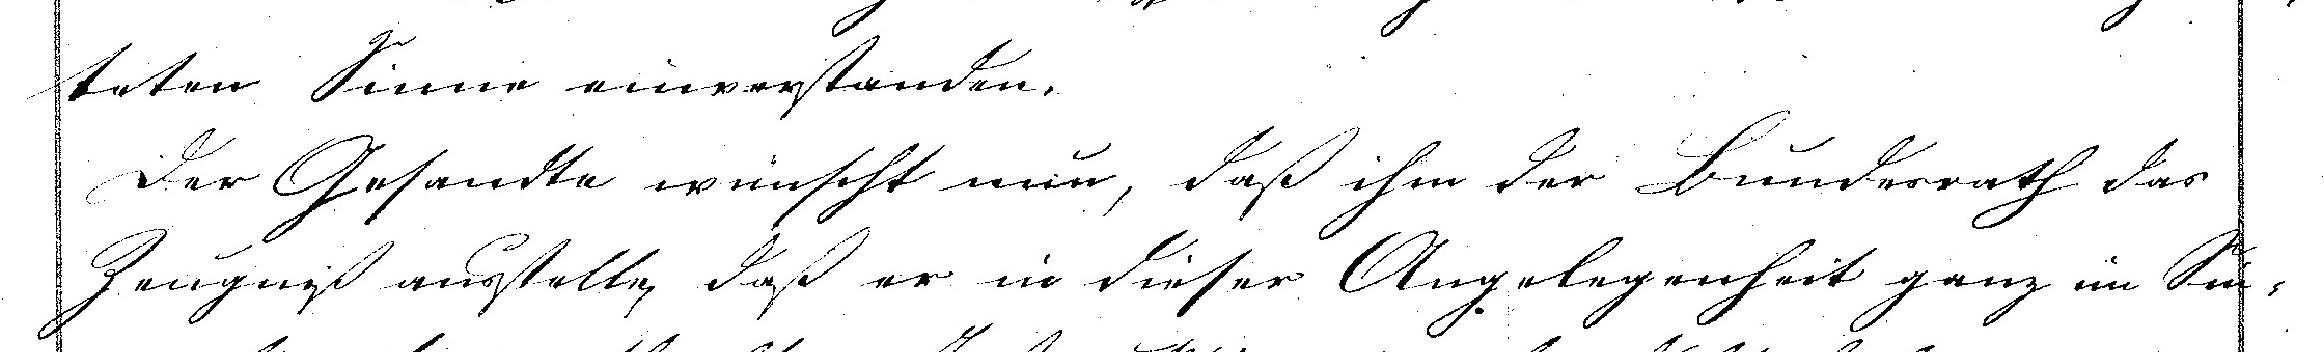 teten Sinne einverstanden.
Der Gesandte wünscht nun, daß ihm der Bundesrath das
Zeugniß ausstelle, daß er in dieser Angelegenheit ganz im Sin-